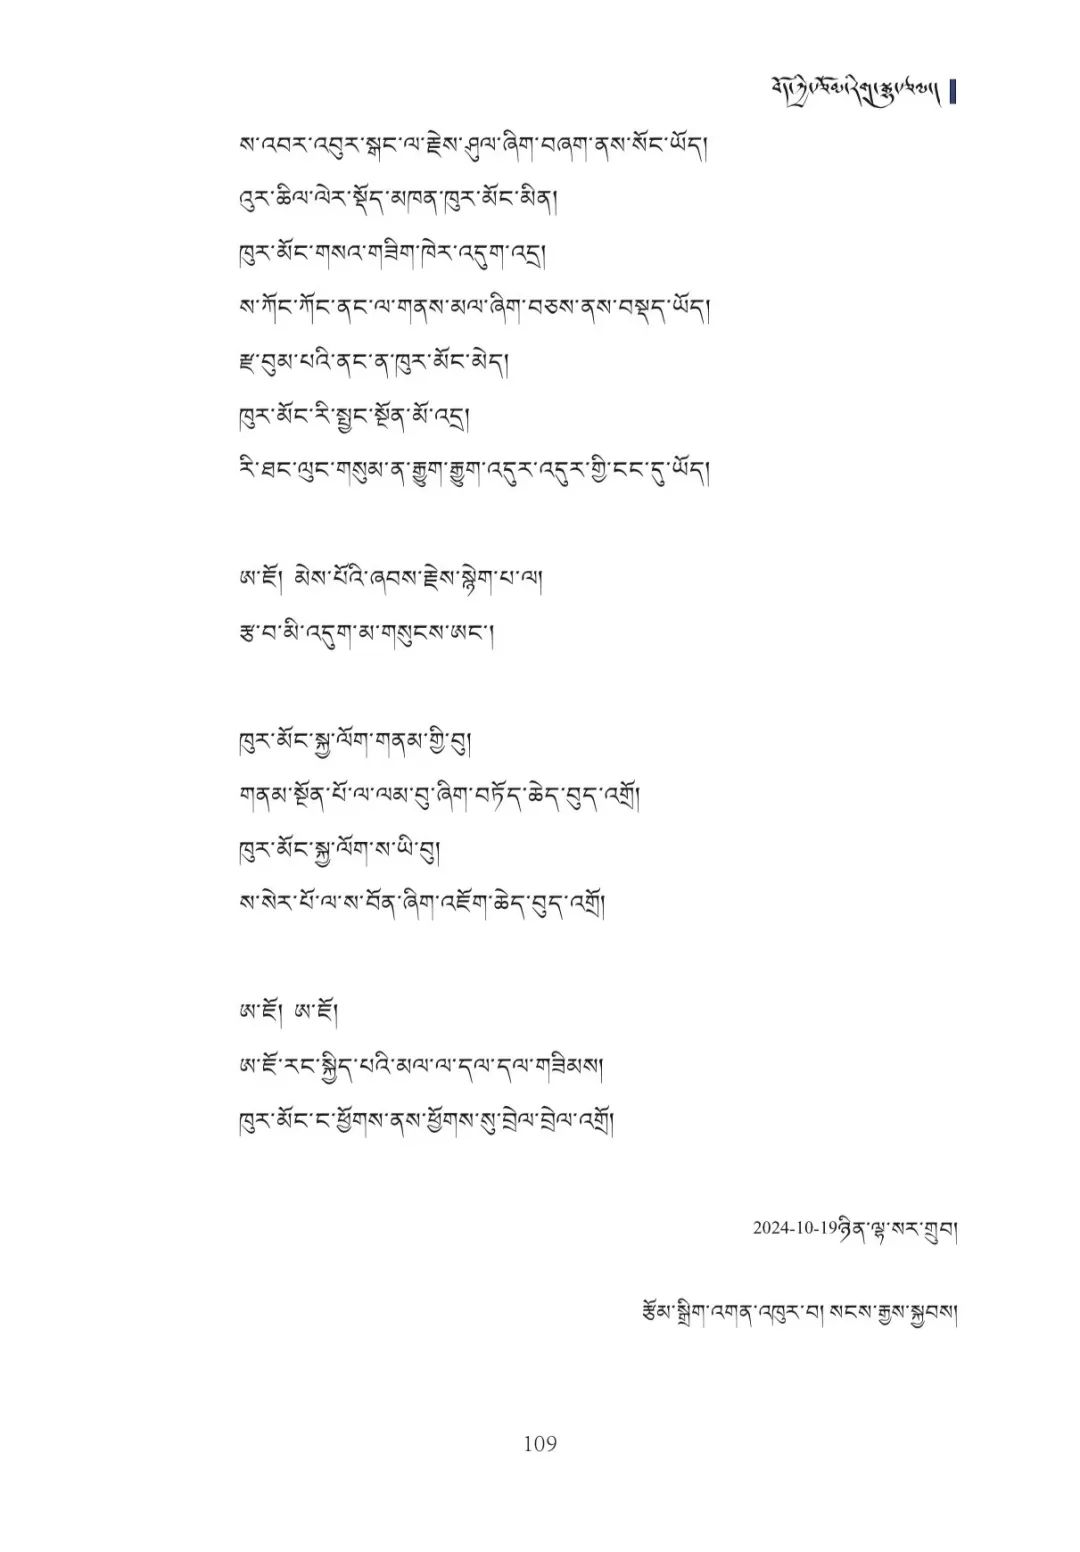 ས་འབར་འབུར་སྒང་ལ་རྗེས་ཤུལ་ཞིག་བཞག་ནས་སོང་ཡོད།
འུར་ཆིལ་ལེར་སྡོད་མཁན་ཁུར་མོང་མིན།
ཁུར་མོང་གསའ་གཟིག་ཁེར་འདུག་འདྲ།
ས་ཀོང་ཀོང་ནང་ལ་གནས་མལ་ཞིག་བཅས་ནས་བསྡད་ཡོད།
རྫ་བུམ་པའི་ནང་ན་ཁུར་མོང་མེད།
ཁུར་མོང་རི་སྤྱང་སྔོན་མོ་འདྲ།
རི་ཐང་ལུང་གསུམ་ན་རྒྱུག་རྒྱུག་འདུར་འདུར་གྱི་ངང་དུ་ཡོད།
ཨ་ཇོ། མེས་པོའི་ཞབས་རྗེས་སྙེག་པ་ལ།
རྩ་བ་མི་འདུག་མ་གསུངས་ཨང་།
ཁུར་མོང་སྐྱ་ལོག་གནམ་གྱི་བུ།
གནམ་སྔོན་པོ་ལ་ལམ་བུ་ཞིག་བཏོད་ཆེད་བུད་འགྲོ།
ཁུར་མོང་སྐྱ་ལོག་ས་ཡི་བུ།
ས་སེར་པོ་ལ་ས་བོན་ཞིག་འཇོག་ཆེད་བུད་འགྲོ།
ཨ་ཇོ། ཨ་ཇོ།
ཨ་ཇོ་རང་སྐྱིད་པའི་མལ་ལ་དལ་དལ་གཟིམས།
ཁུར་མོང་ང་ཕྱོགས་ནས་ཕྱོགས་སུ་བྲེལ་བྲེལ་འགྲོ།
2024-10-19ཉིན་ལྷ་སར་གྲུབ།
རྩོམ་སྒྲིག་འགན་འཁུར་བ། སངས་རྒྱས་སྐྱབས།
109